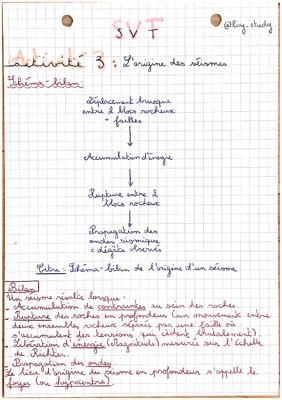 SVT
@livy_study
Activité 3 : L'origine des séismes
Schéma-bilan:
Déplacement brusque
entre 2 blocs rocheux
= failles
Accumulation d'énergie
Rupture entre 2
blocs rocheux
Propagation des
ondes sismique
= dégâts
Titre : Schéma-bilan de l'origine d'un séisme
Bilan
Un séisme résulte lorsque :
- Accumulation de contraintes au sein des roches
- Rupture des roches en profondeur (un mouvement entre
deux ensembles rocheux séparés par une faille où
s'accumulent des tensions que cèdent brutalement).
- Libération d'énergie (Magnitude) mesurée sur l'échelle
de Richter.
- Propagation des ondes.
Le lieu d'origine du séisme en profondeur s'appelle le
foyer (ou hypocentre).